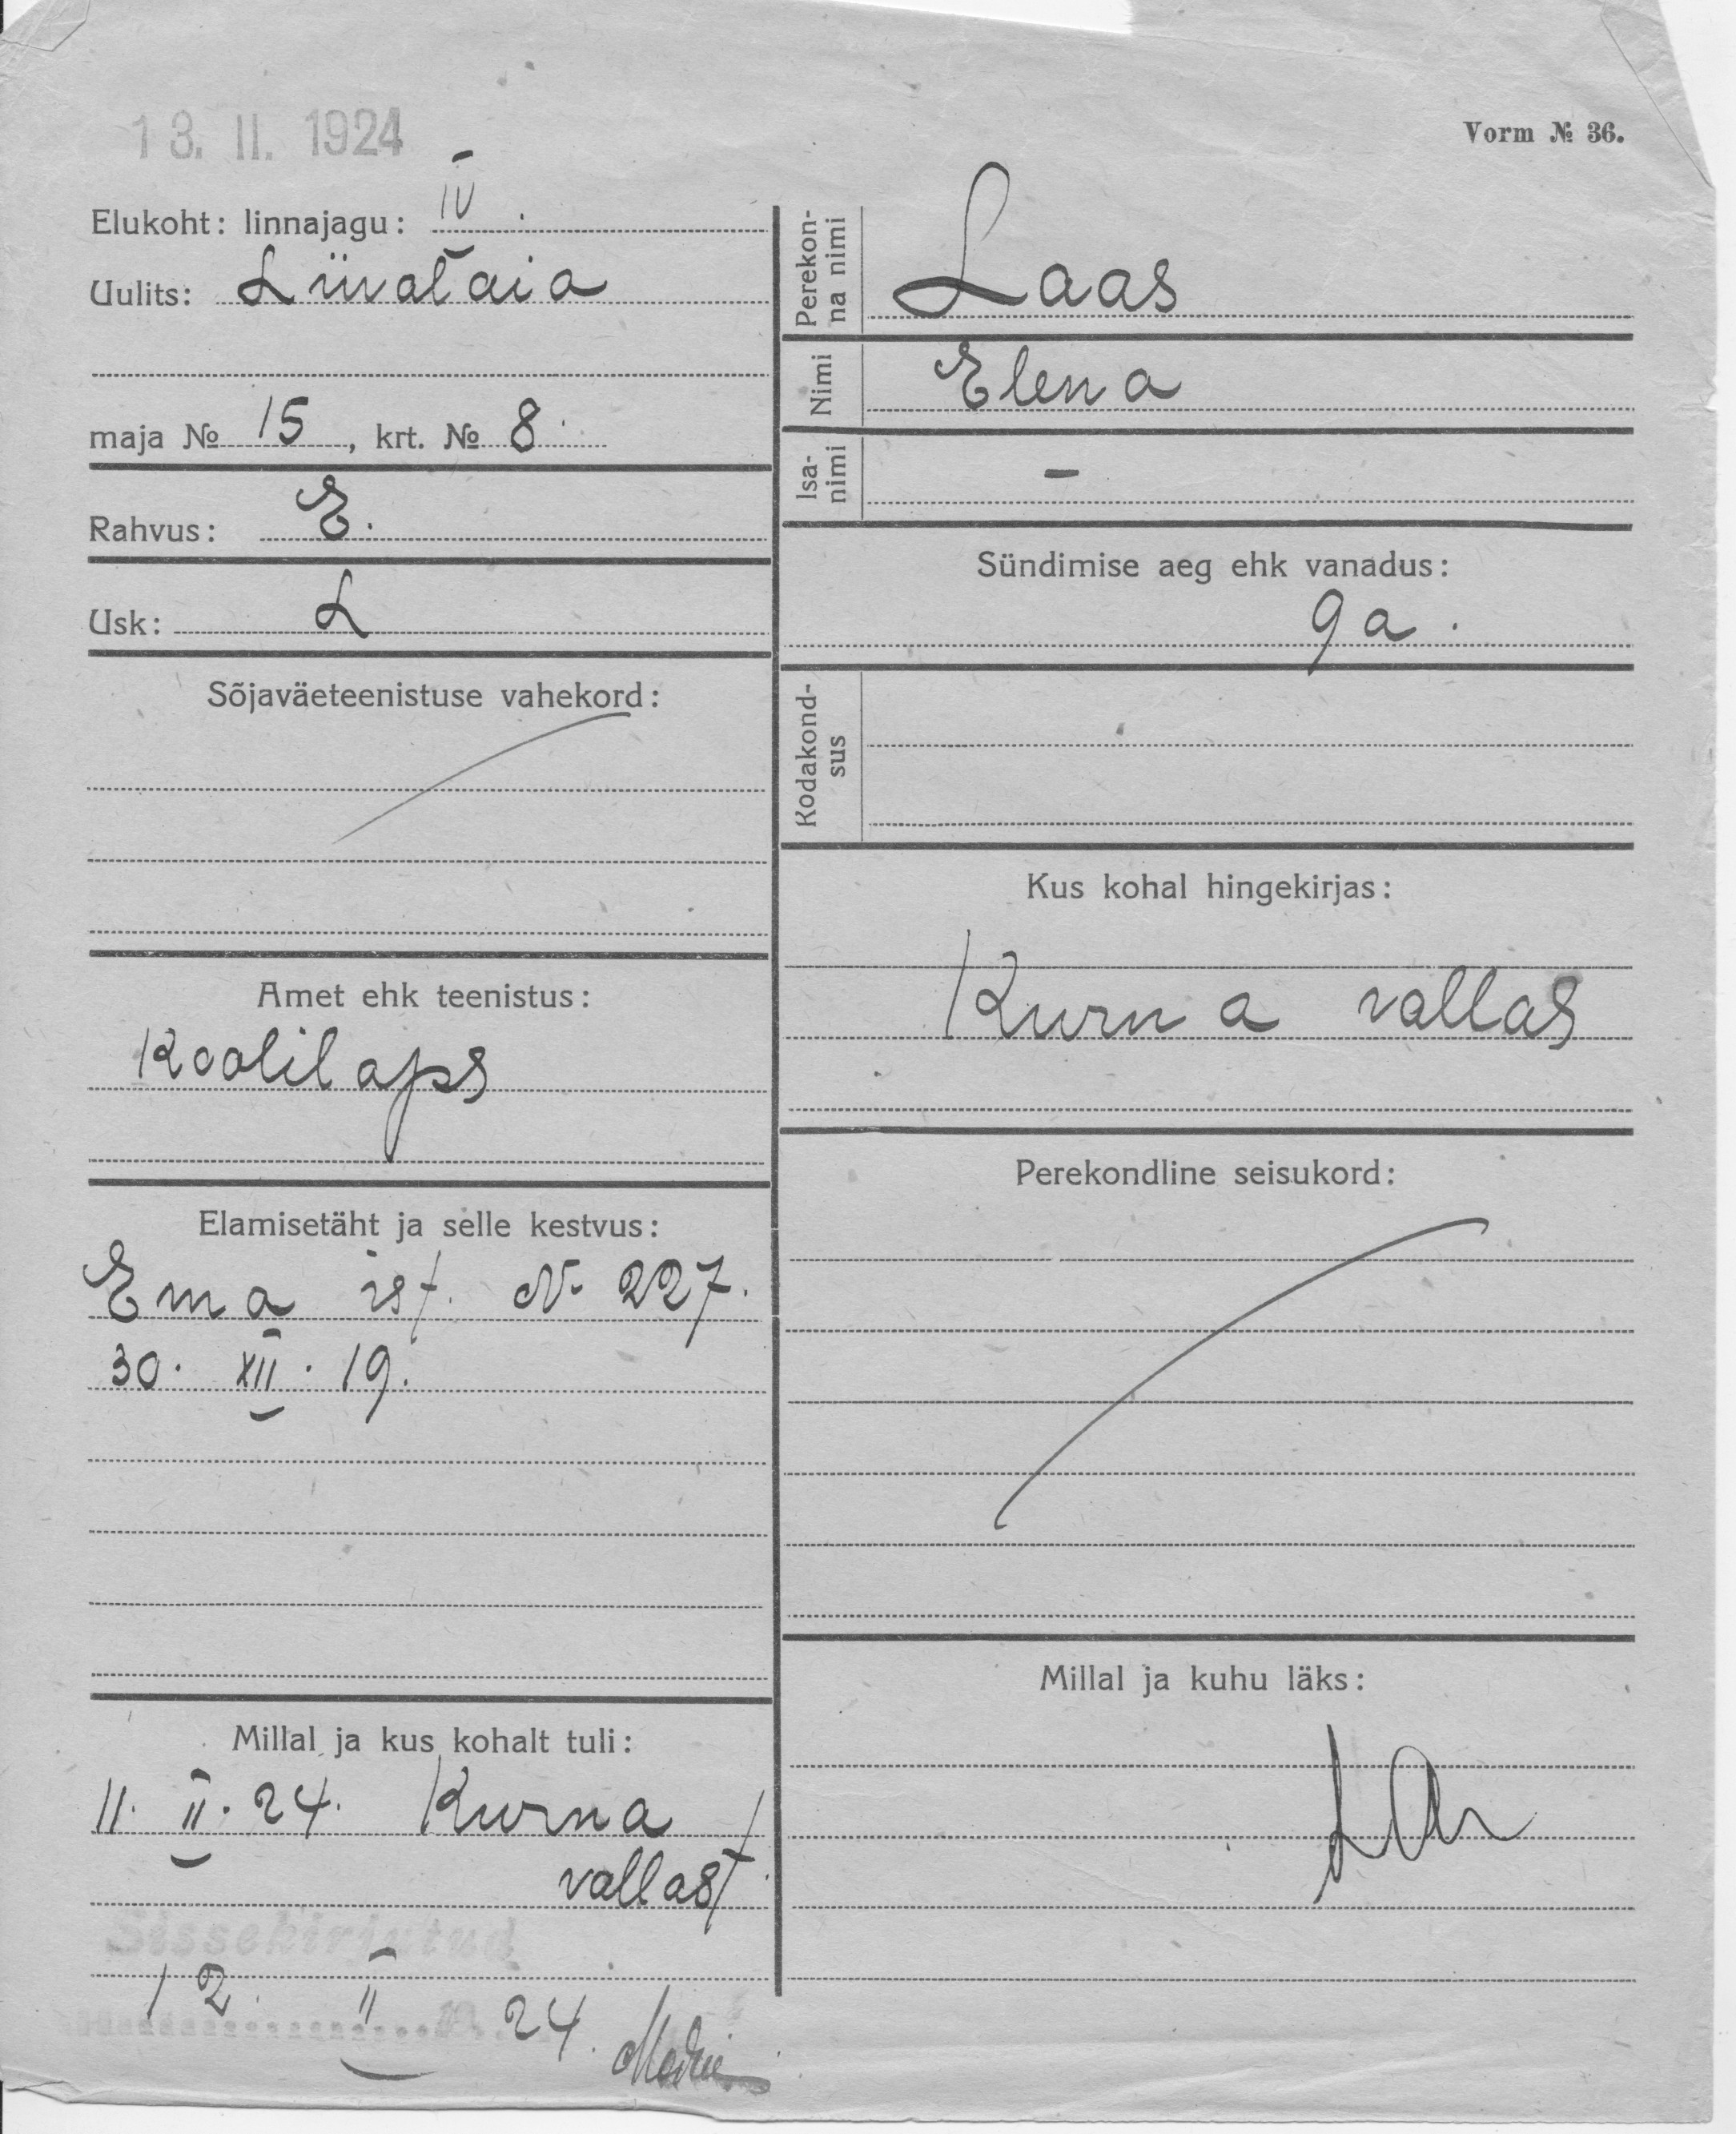 13. II. 1924
Vorm № 36.
Elukoht: linnajagu: IV.
Uulits: Liivataia
maja № 15, krt. № 8.
Rahvus: E.
Usk: L
Sõjaväeteenistuse vahekord:
Amet ehk teenistus:
Koolilaps
Elamisetäht ja selle kestvus:
Ema ist. N- 227.
30. XII. 19.
Millal ja kus kohalt tuli:
11. II. 24. Kurna
vallast.
Sissekirjutud
12. II 24.
Perekon-
na nimi
Laas
Nimi
Elena
Isa-
nimi
–
Sündimise aeg ehk vanadus:
9 a.
Kodakond-
sus
Kus kohal hingekirjas:
Kurna vallas
Perekondline seisukord:
Millal ja kuhu läks: